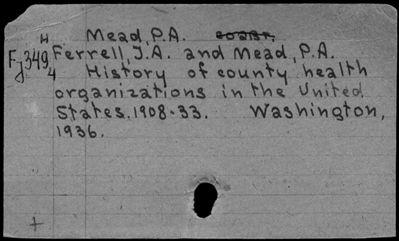 H Mead, P.A.
Fj349 Ferrell, J.A. and Mead, P.A.
4 History of county health
organizations in the United
States, 1908-33. Washington,
1936.
+